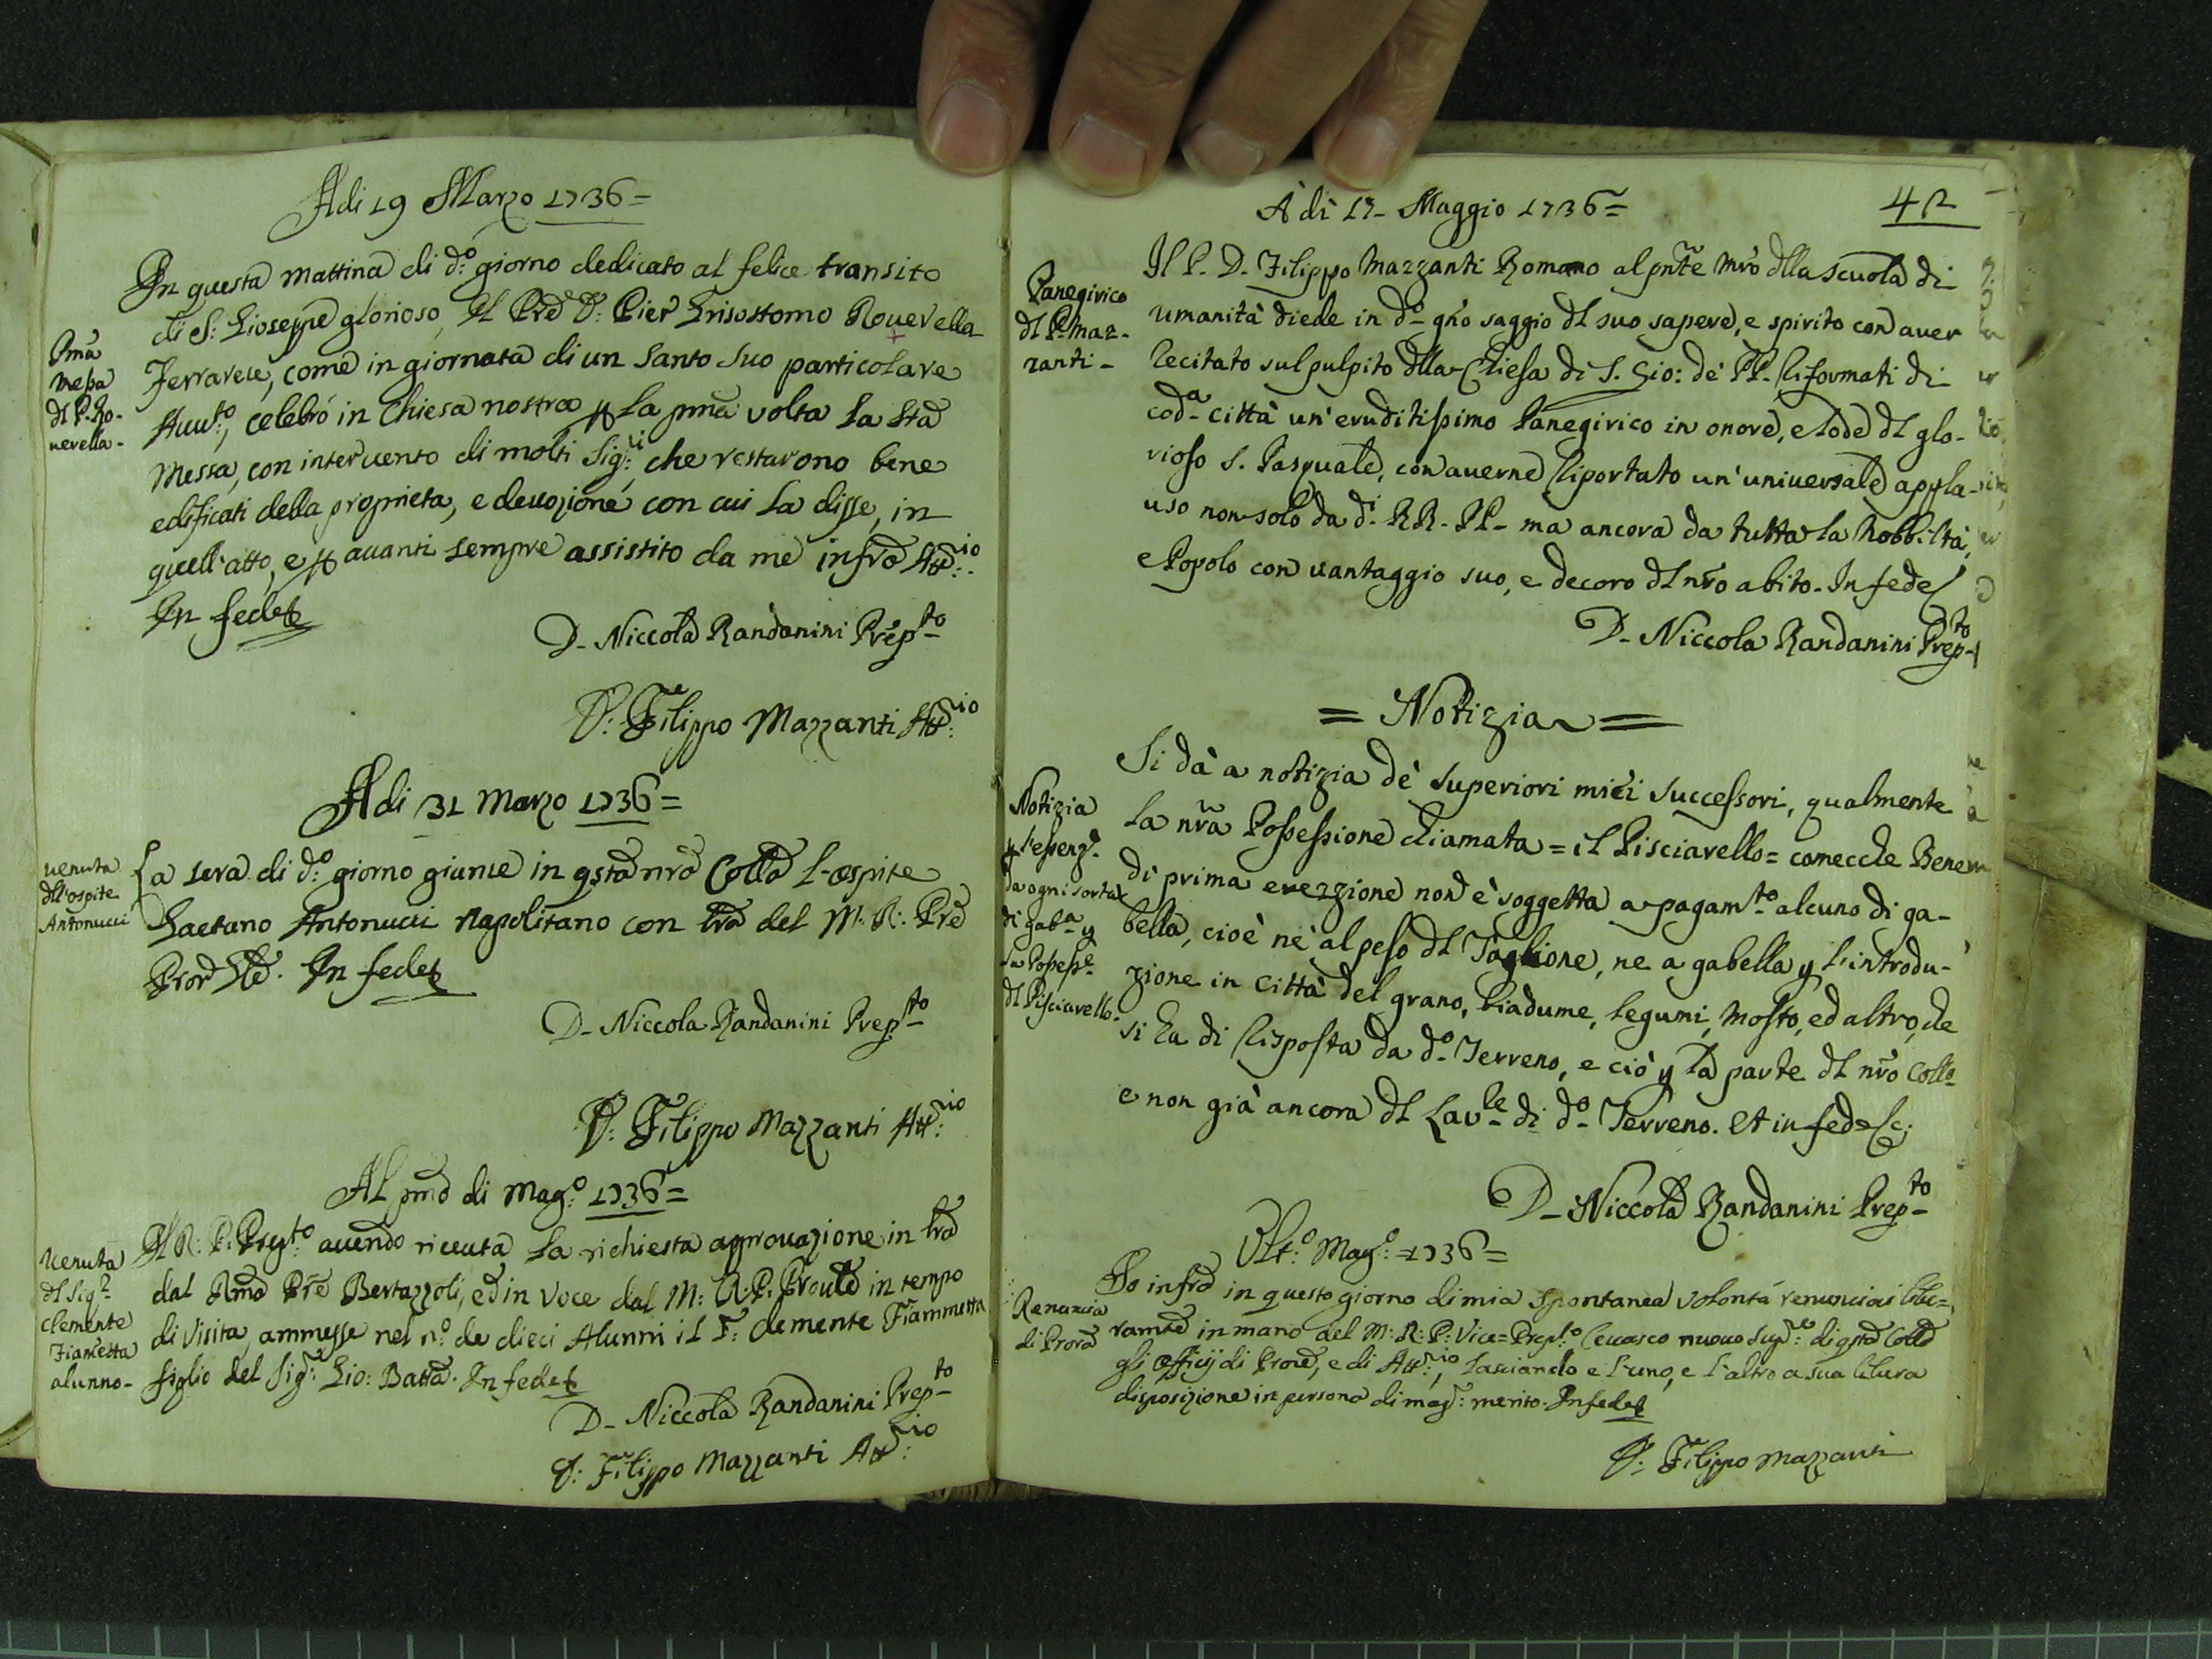 Adi 19 Marzo 1736=
In questa mattina di d.o giorno dedicato al felice transito
di S: Gioseppe glorioso, Il Prē D: Pier Grisostomo Rovevella
Pm̄a
Messa
dl P. Ro-
verella-
Ferrarese, come in giornata di un Santo suo particolare
Avv.to, celebrò in Chiesa nostra p la pm̄a volta la Stā
Messa, con intervento di molti Sig.ri, che restarono bene
edificati della proprietà, e devozione, con cui la disse, in
quell'atto, e p avanti sempre assistito da me infrō Att.rio
In fede
D- Niccola Randanini Prep.to
D: Filippo Mazzanti Att.rio
Adi 31 Marzo 1736=
venuta
dll'ospite
Antonucci
La sera di d.o giorno giunse in qstā nrā Collō L-ospite
Gaetano Antonucci Napolitano con lrā del M: R: Prē
Proc Gle. In fede
D- Niccola Randanini Prep.to
D: Filippo Mazzanti Att.rio
Al pmō di Mag.o 1736=
Venuta
dl Sig.r
Clemente
Fiametta
alunno-
Il R: P: Prep.to avendo ricevuta la richiesta approvazione in lrā
dal Rmō Prē Bertazzoli, ed in voce dal M: R: P: Provle in tempo
di Visita, ammesse nel n.o de dieci Alunni il F: Clemente Fiammetta
figlio del Sig.r Gio: Battā. In fede
D- Niccola Randanini Prep.to
D: Filippo Mazzanti Att.rio
42
A dì 17- Maggio 1736=
Panegirico
dl P. Maz-
zanti-
Il P. D. Filippo Mazzanti Romano al pn̄te Mrō dlla Scuola di
umanità diede in d.o gn̄o saggio dl suo sapere, e spirito con aver
recitato sul pulpito dlla Chiesa di S. Gio: de' PP. Riformati di
cod.a città un' eruditissimo Panegirico in onore, e lode dl glo-
rioso S. Pasquale, con averne riportato un' universale appla-
uso non solo da d.i RR. PP- ma ancora da tutta la Nobbiltà,
e Popolo con vantaggio suo, e decoro dl nr̄o abito. In fede
D- Niccola Randanini Prep.to
= Notizia =
Si dà a notizia de' Superiori miei Successori, qualmente
Notizia
p l'essenz.e
da ogni sorta
di gab.a p
la Possess.e
dl Pisciarello-
la nr̄a Possessione chiamata = il Pisciarello= comecche Bene
di prima erezzione non è soggetta a pagam.to alcuno di ga-
bella, cioè nè al peso dl Taglione, ne a gabella p l'introdu-
zione in Città del grano, biadume, legumi, Mosto, ed altro, che
si ha di risposta da d.o Terreno, e ciò p la parte dl nr̄o Coll.o
e non già ancora dl Lav.le di d.o Terreno. Et in fede
D- Niccola Randanini Prep.to
Ult.o Mag.o =1736=
Renunzia
di Procrā
Io infrō in questo giorno di mia spontanea volontà renunziai libe=
ramte in mano del M: R: P: Vice=Prep.to Cevasco nuovo Sup.re di qstō Collō
gli officij di Procre, e di Att.rio, lasciando e l'uno, e l'altro a sua libera
disposizione in persona di mag.r merito. In fede
D: Filippo Mazzanti